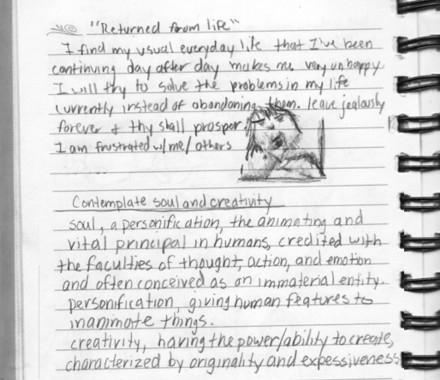 "Returned from life"
I find my usual everyday life that I've been
continuing day after day makes me very unhappy
I will try to solve the problems in my life
currently instead of abandoning them. leave jealously
forever & thy shall prosper.
I am frustrated w/me/others
Contemplate soul and creativity
soul, a personification, the animating and
vital principal in humans, credited with
the faculties of thought, action, and emotion
and often conceived as an immaterial entity.
personification, giving human features to
inanimate things.
creativity, having the power/ability to create,
characterized by originality and expessiveness